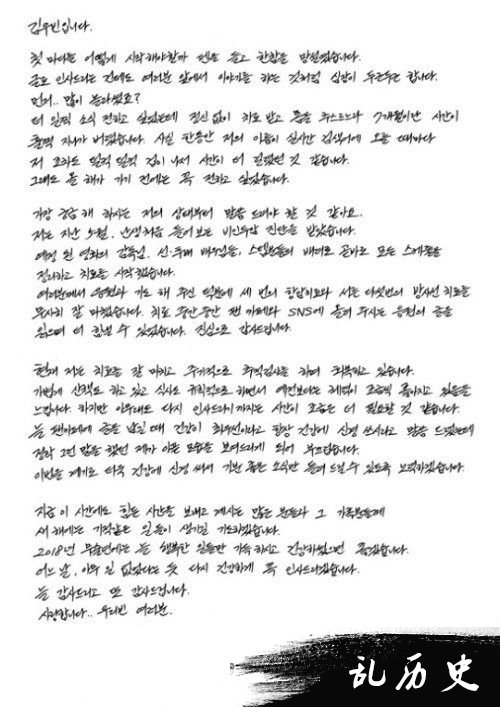 김우빈입니다.
첫 마디는 어떻게 시작해야할까 펜을 들고 한참을 망설였습니다.
글로 인사드리는 건데도 여러분 앞에서 이야기를 하는 것처럼 심장이 두근두근 합니다.
먼저.. 많이 놀라셨죠?
더 일찍 소식 전하고 싶었는데 정신 없이 치료 받고 몸을 추스르느라 7개월이란 시간이
훌쩍 지나가 버렸습니다. 사실 한동안 저의 이름이 실시간 검색어에 오를 때마다
저 조차도 덜컥 덜컥 겁이 나서 시간이 더 걸렸던 것 같습니다.
그래도 올 해가 가기 전에는 꼭 전하고 싶었습니다.
가장 궁금해 하시는 저의 상태부터 말씀 드려야 할 것 같아요.
저는 지난 5월, 난생처음 들어보는 비인두암 진단을 받았습니다.
예정 된 영화의 감독님, 선·후배 배우님들, 스텝분들의 배려로 곧바로 모든 스케줄을
정리하고 치료를 시작했습니다.
여러분께서 응원과 기도 해 주신 덕분에 세 번의 항암치료와 서른 다섯번의 방사선 치료를
무사히 잘 마쳤습니다. 치료 중간중간 팬 카페나 SNS에 올려 주시는 응원의 글을
읽으며 더 힘낼 수 있었습니다. 진심으로 감사드립니다.
현재 저는 치료를 잘 마치고 주기적으로 추적검사를 하며 회복하고 있습니다.
가볍게 산책도 하고 있고 식사도 규칙적으로 하면서 예전보다는 체력이 조금씩 좋아지고 있음을
느낍니다. 하지만 아무래도 다시 인사드리기까지는 시간이 조금은 더 필요할 것 같습니다.
늘 팬카페에 글을 남길 때 건강이 최우선이라고 항상 건강에 신경 쓰시라고 말씀 드렸었는데
정작 그런 말을 했던 제가 아픈 모습을 보여드리게 되어 부끄럽습니다.
이번을 계기로 더욱 건강에 신경 써서 기쁜 좋은 소식만 들려 드릴 수 있도록 노력하겠습니다.
지금 이 시간에도 힘든 시간을 보내고 계시는 많은 분들과 그 가족분들께
새 해에는 기적같은 일들이 생기길 기도하겠습니다.
2018년 무술년에는 늘 행복한 일들만 가득 하시고 건강하셨으면 좋겠습니다.
어느 날, 아무 일 없었다는 듯 다시 건강하게 꼭 인사드리겠습니다.
늘 감사드리고 또 감사드립니다.
사랑합니다.. 우리빈 여러분.
乱历史